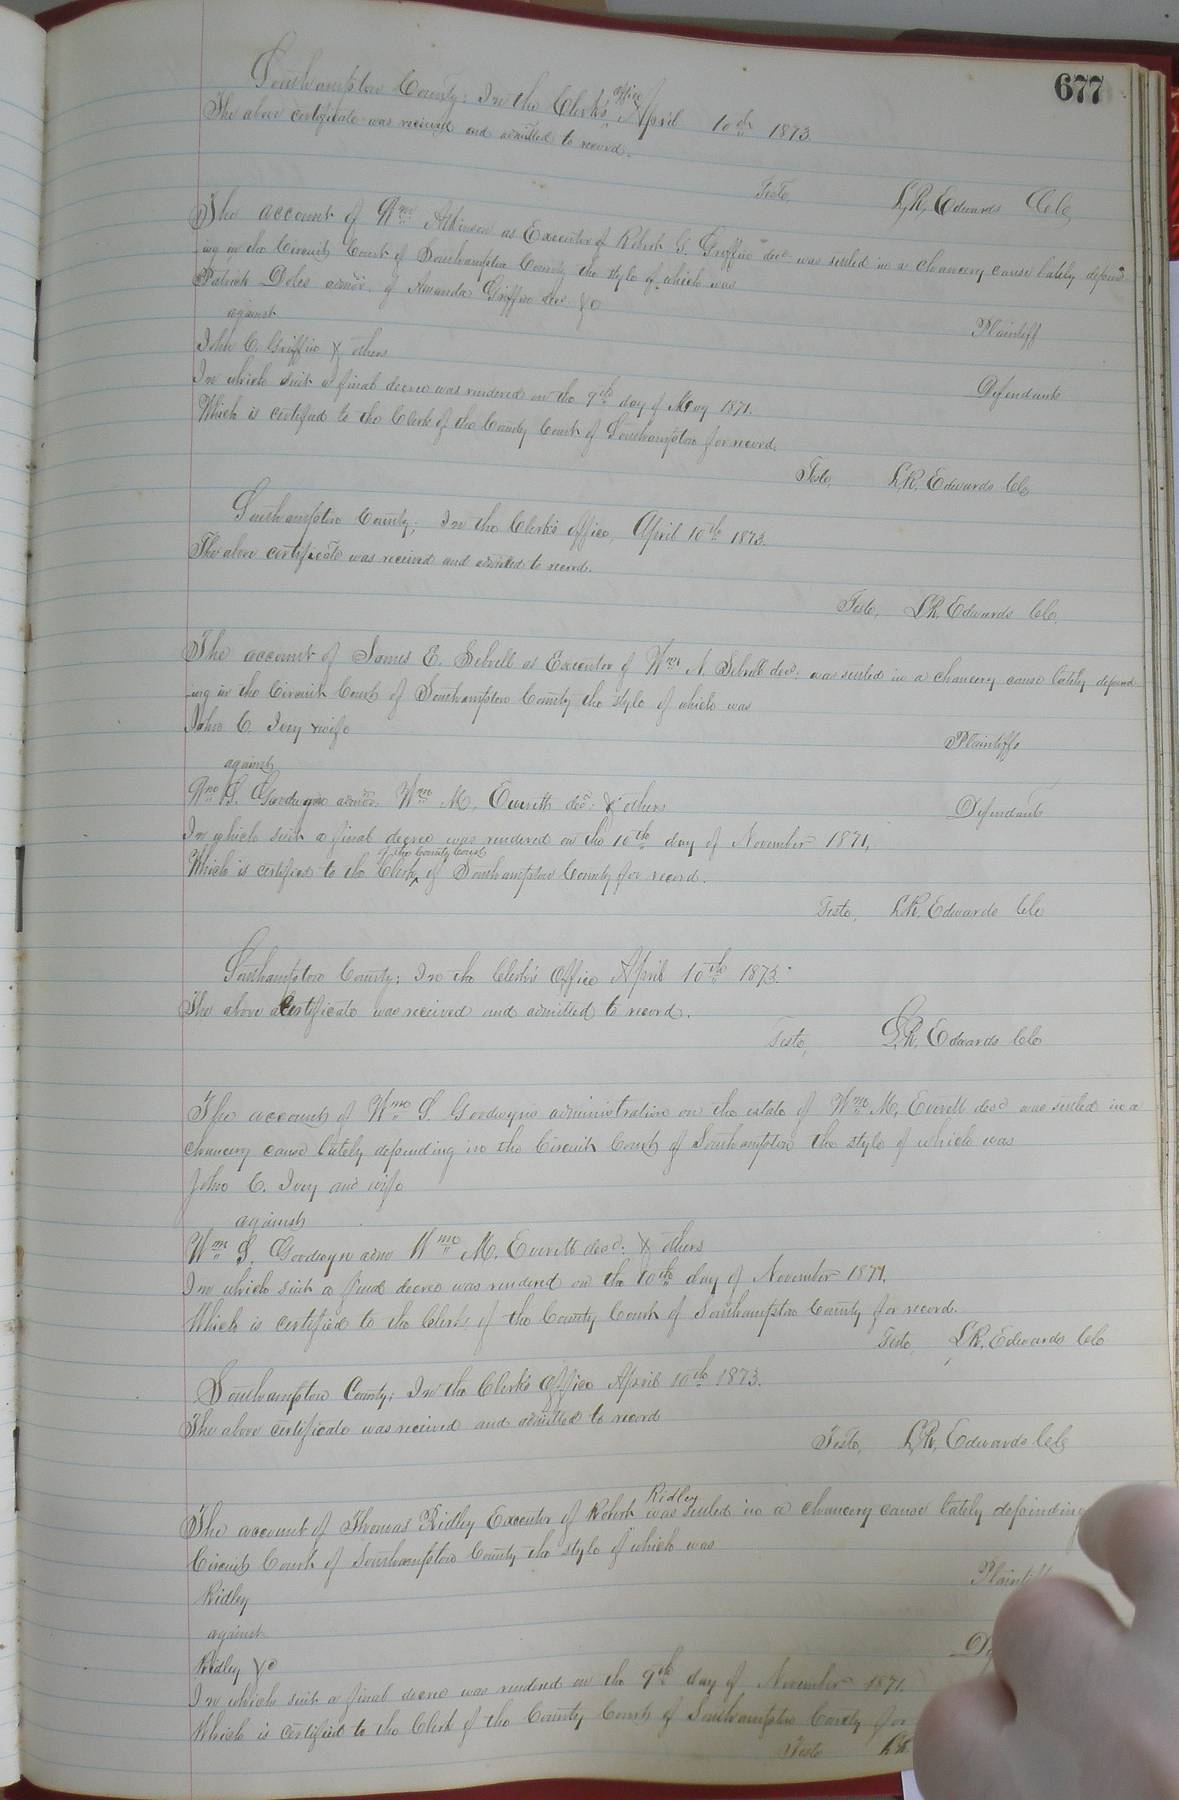 677
Southampton County: In the Clerk's office April 10th 1873
The above certificate was received and admitted to record.
Teste, L. R. Edwards Clk
The account of Wm Atkinson as Executor of Robert G. Griffin decd was settled in a chancery cause lately depend
ing in the Circuit Court of Southampton County the style of which was
Patrick Doles admor. of Amanda Griffin decd &c
Plaintiff
against
John C. Griffin & others
Defendants
In which suit a final decree was rendered on the 9th day of May 1871.
Which is certified to the Clerk of the County Court of Southampton for record.
Teste, L. R. Edwards Clk
Southampton County; In the Clerk's office, April 10th 1873.
The above certificate was received and admitted to record.
Teste, L. R. Edwards Clk.
The account of James E. Sebrell as Executor of Wm N. Sebrell decd. was settled in a chancery cause lately depend
ing in the Circuit Court of Southampton County the style of which was
John C. Ivey & wife
Plaintiffs
against
Wm S. Goodwyn admor. Wm M. Everitt decd. & others
Defendants
In which suit a final decree was rendered on the 10th day of November 1871,
Which is certified to the Clerk of the County Court of Southampton County for record.
Teste, L. R. Edwards Clk
Southampton County; In the Clerk's Office April 10th 1873.
The above certificate was received and admitted to record.
Teste, L. R. Edwards Clk
The account of Wm S. Goodwyns administration on the estate of Wm M. Everett decd was settled in a
chancery cause lately depending in the Circuit Court of Southampton the style of which was
John C. Ivey and wife
against
Wm S. Goodwyn admr Wm M. Everitt decd. & others
In which suit a final decree was rendered on the 10th day of November 1871.
Which is certified to the Clerk of the County Court of Southampton County for record.
Teste, L. R. Edwards Clk
Southampton County; In the Clerk's Office April 10th 1873.
The above certificate was received and admitted to record
Teste, L. R. Edwards Clk
The account of Thomas Ridley Executor of Robert Ridley was settled in a chancery cause lately depending
Circuit Court of Southampton County the style of which was
Ridley
Plaintiff
against
Ridley &c
In which suit a final decree was rendered on the 9th day of November 1871.
Which is certified to the Clerk of the County Court of Southampton County for
Teste L. R.